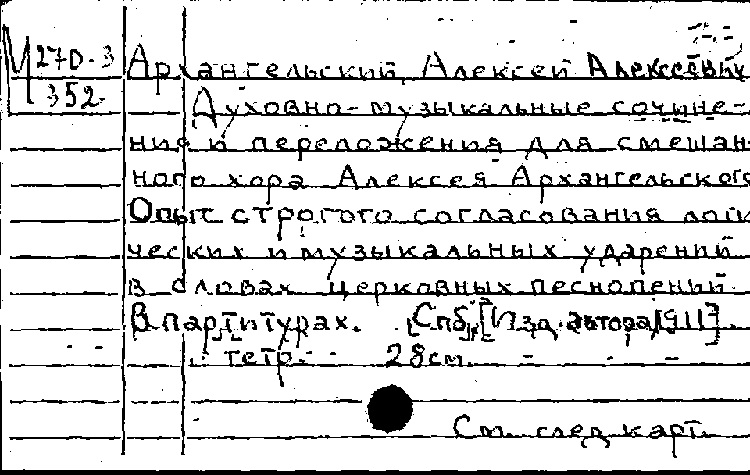 М 270-3
352
Архангельский, Алексей Алексеевич
Духовно-музыкальные сочине-
ния и переложения для смешан-
ного хора Алексея Архангельского
Опыт строгого согласования логи
ческих и музыкальных ударений
в словах церковных песнопений.
В партитурах. [Спб], [Изд. автора, 1911]
тетр. 28 см.
См. след. карт.